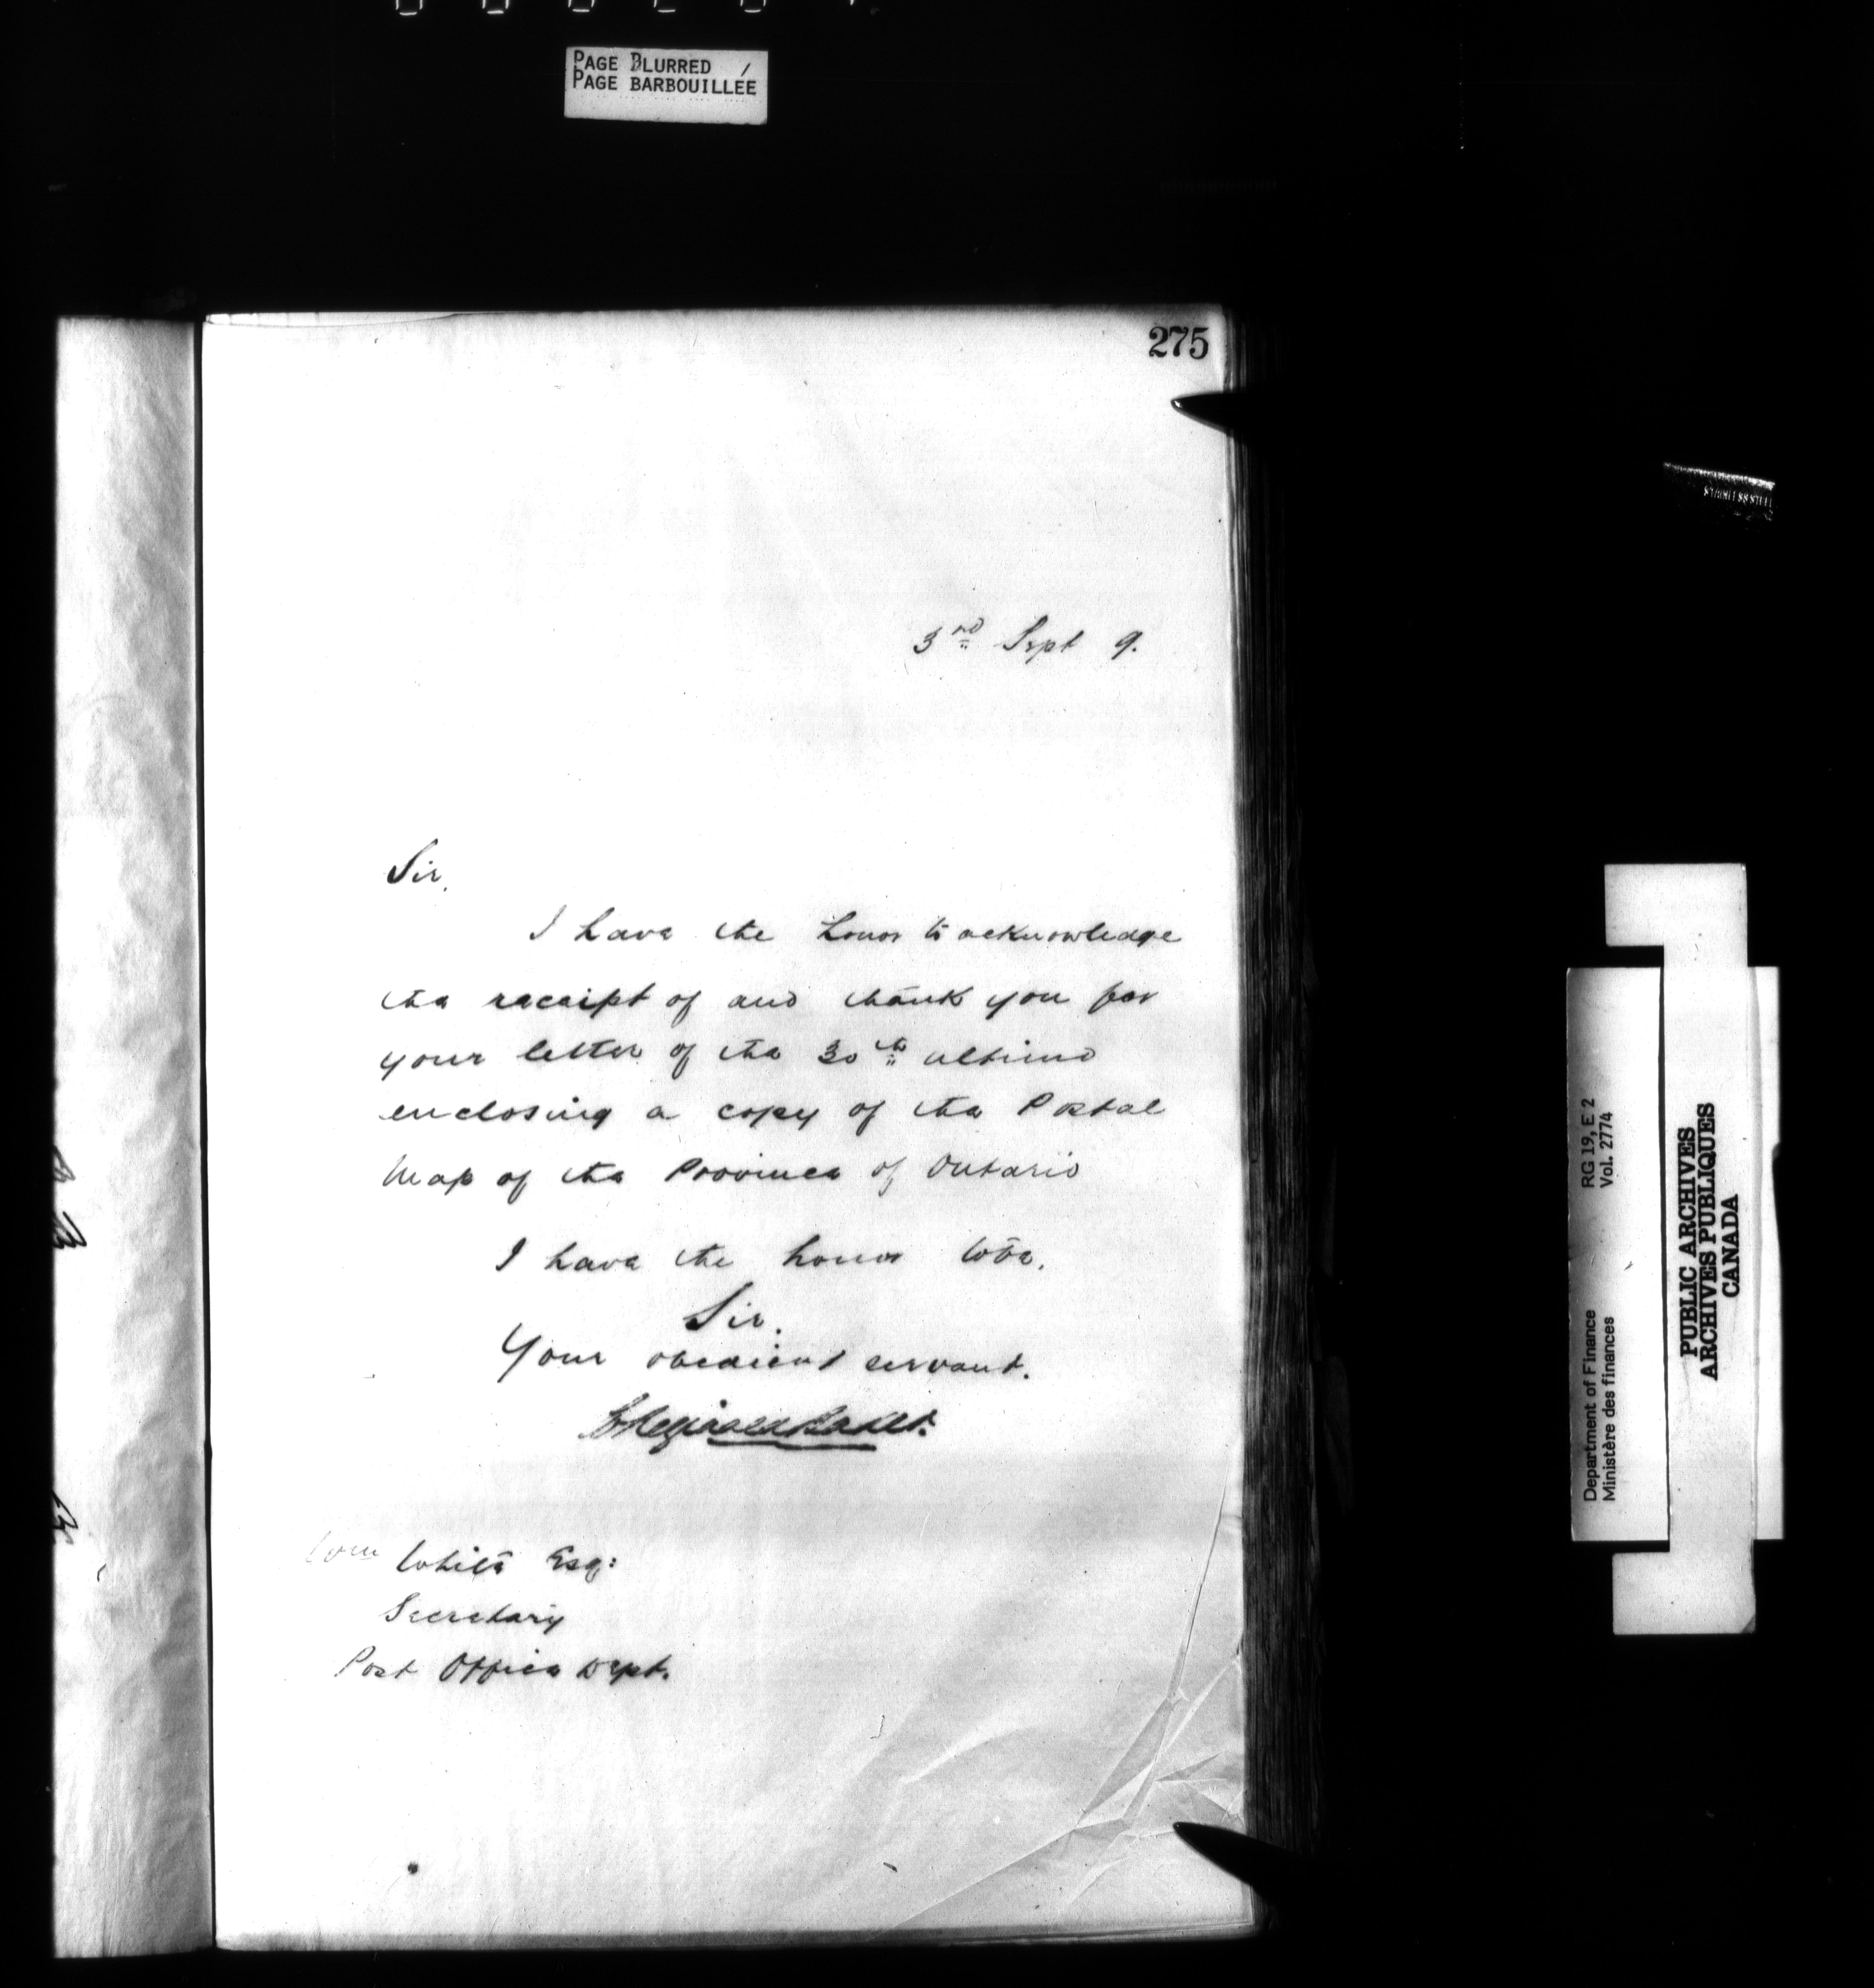 PAGE BLURRED
PAGE BARBOUILLÉE
275
3rd Sept 9.
Sir,
I have the honor to acknowledge
the receipt of and thank you for
your letter of the 30th ultimo
enclosing a copy of the Postal
Map of the Province of Ontario
I have the honor to be,
Sir.
Your obedient servant.
Wm White Esq:
Secretary
Post Office Dept.
Department of Finance RG 19, E 2
Ministère des finances Vol. 2774
PUBLIC ARCHIVES
ARCHIVES PUBLIQUES
CANADA